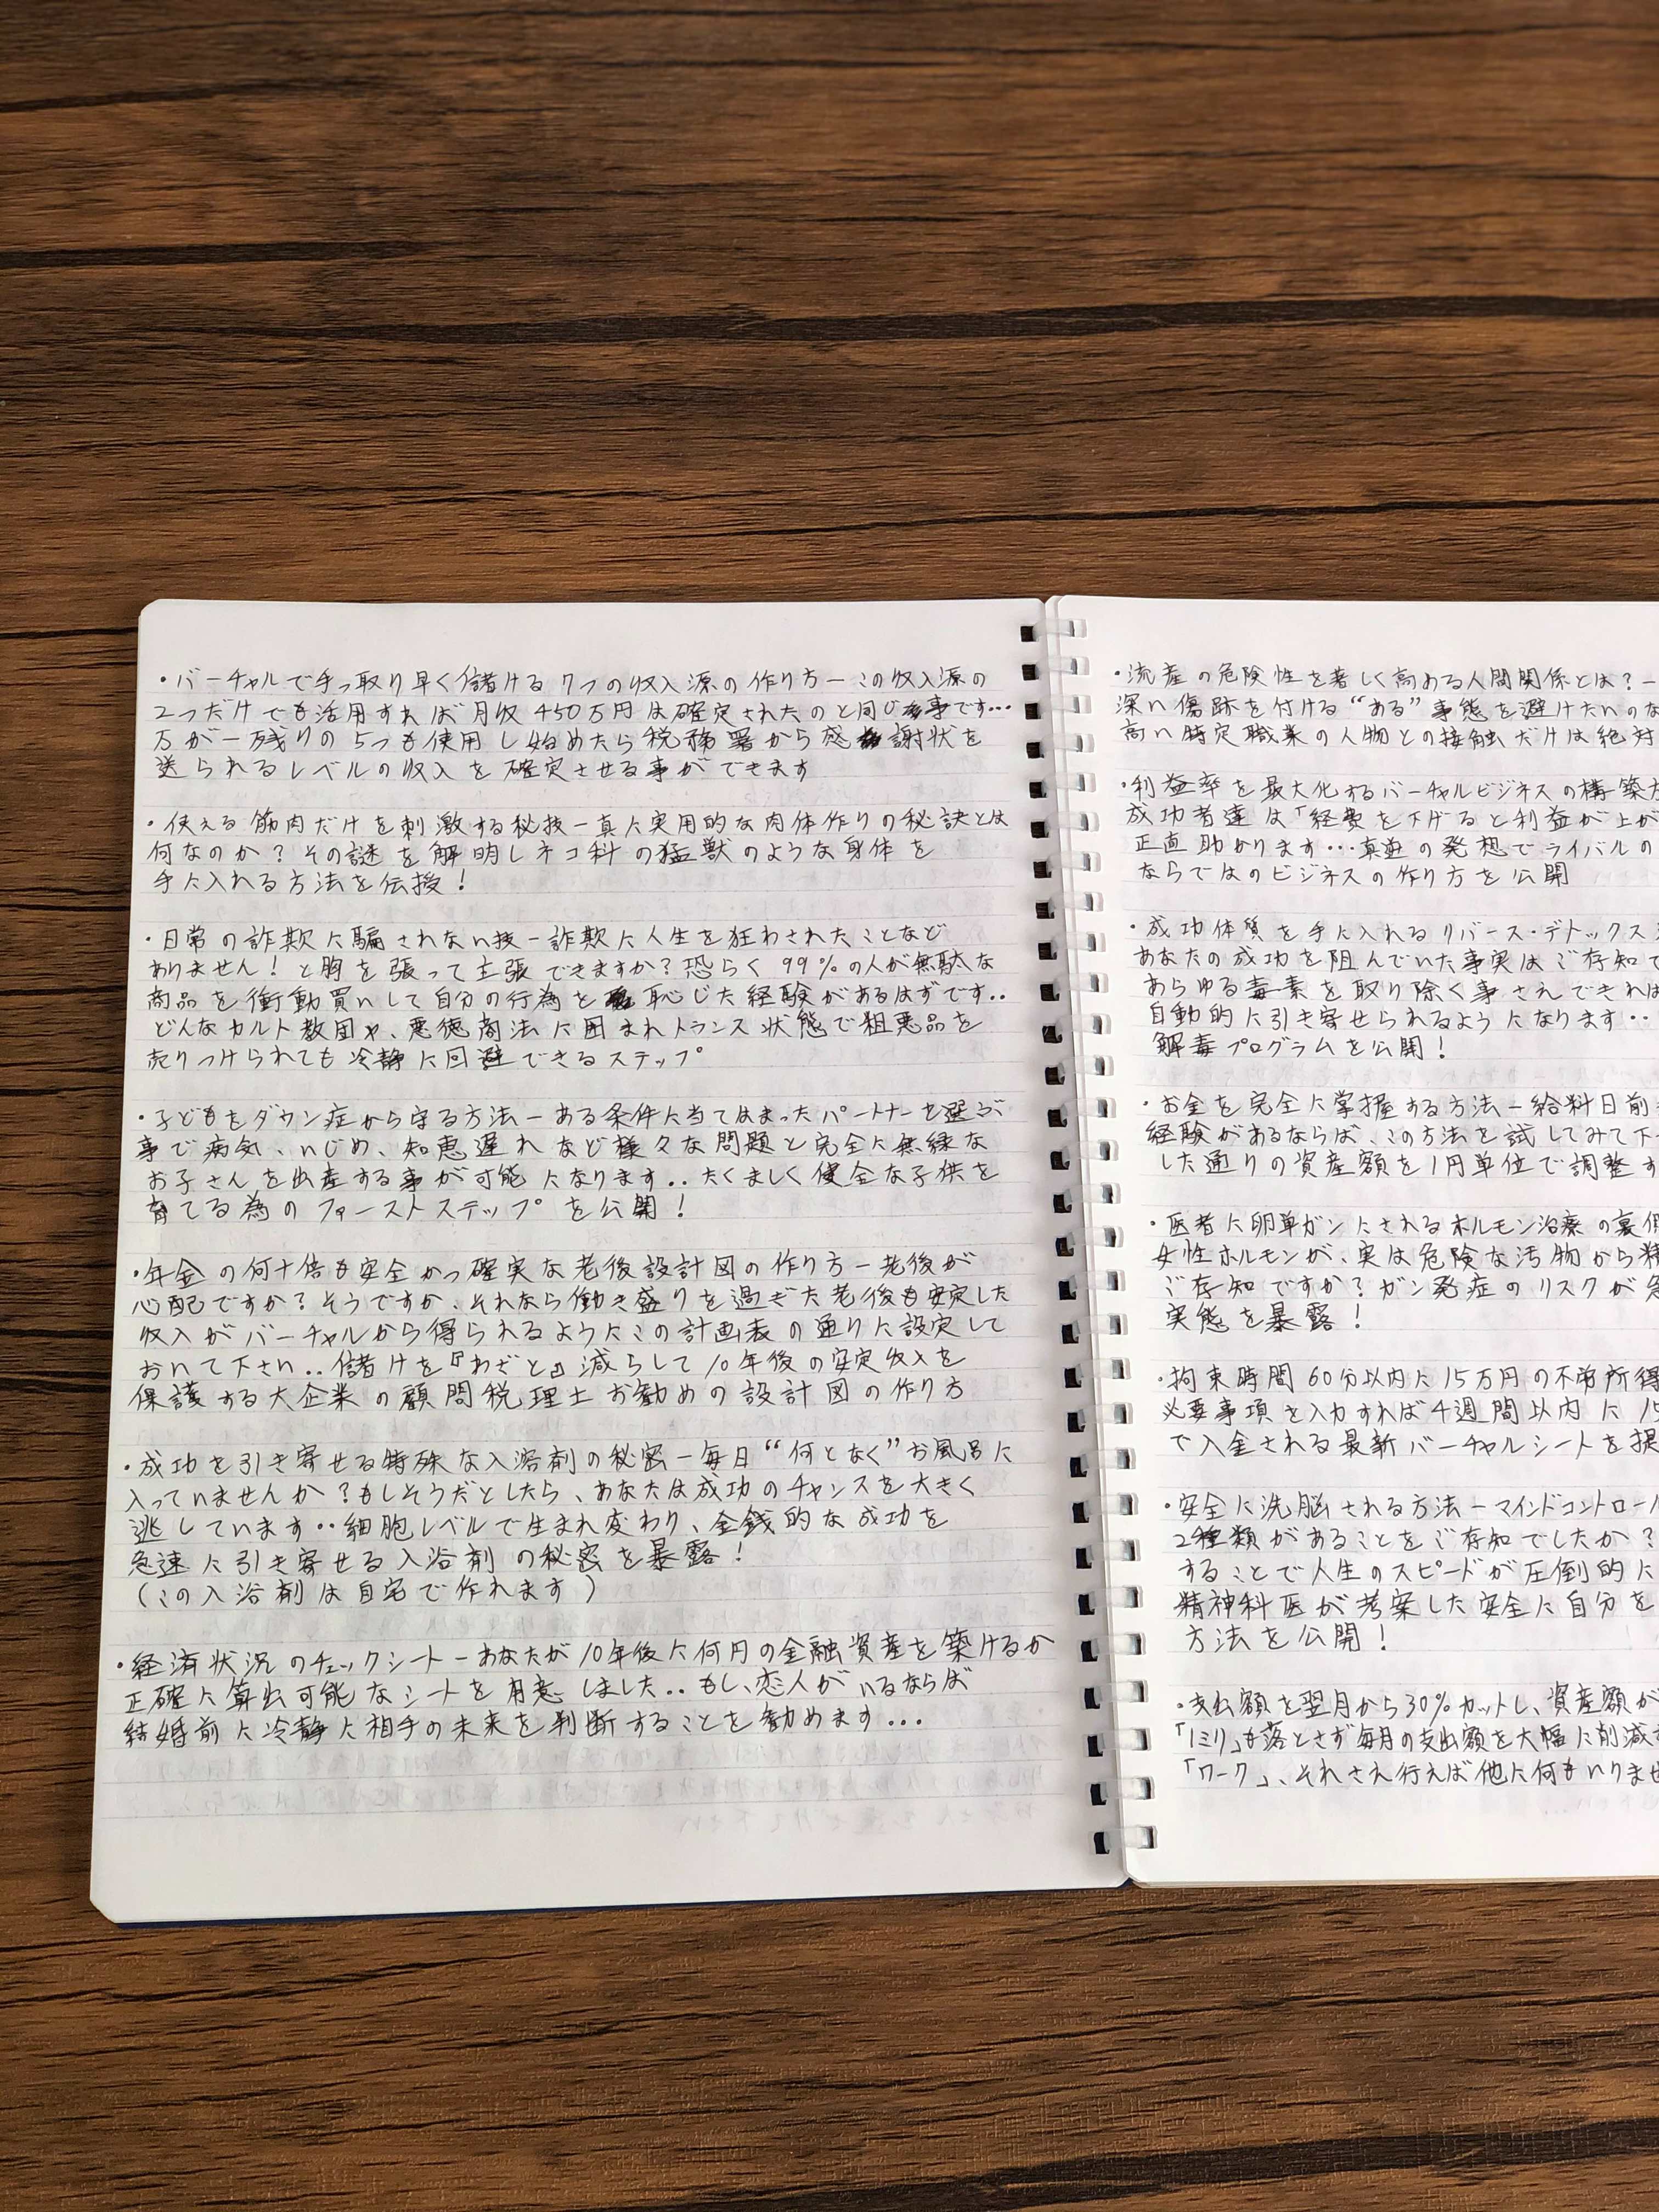 ・バーチャルで手っ取り早く儲ける7つの収入源の作り方ーこの収入源の
2つだけでも活用すれば月収450万円は確定されたのと同じ事です…
万が一残りの5つも使用し始めたら税務署から感謝状を
送られるレベルの収入を確定させる事ができます
・使える筋肉だけを刺激する秘技ー真に実用的な肉体作りの秘訣とは
何なのか?その謎を解明しネコ科の猛獣のような身体を
手に入れる方法を伝授!
・日常の詐欺に騙されない技ー詐欺に人生を狂わされたことなど
ありません!と胸を張って主張できますか?恐らく99%の人が無駄な
商品を衝動買いして自分の行為を恥じた経験があるはずです..
どんなカルト教団や、悪徳商法に囲まれトランス状態で粗悪品を
売りつけられても冷静に回避できるステップ
・子どもをダウン症から守る方法ーある条件に当てはまったパートナーを選ぶ
事で病気、いじめ、知恵遅れなど様々な問題と完全に無縁な
お子さんを出産する事が可能になります..たくましく健全な子供を
育てる為のファーストステップを公開!
・年金の何十倍も安全かつ確実な老後設計図の作り方ー老後が
心配ですか?そうですか、それなら働き盛りを過ぎた老後も安定した
収入がバーチャルから得られるようにこの計画表の通りに設定して
おいて下さい..儲けを『わざと』減らして10年後の安定収入を
保護する大企業の顧問税理士お勧めの設計図の作り方
・成功を引き寄せる特殊な入溶剤の秘密ー毎日“何となく”お風呂に
入っていませんか?もしそうだとしたら、あなたは成功のチャンスを大きく
逃しています..細胞レベルで生まれ変わり、金銭的な成功を
急速に引き寄せる入浴剤の秘密を暴露!
(この入浴剤は自宅で作れます)
・経済状況のチェックシートーあなたが10年後に何円の金融資産を築けるか
正確に算出可能なシートを用意しました..もし、恋人がいるならば
結婚前に冷静に相手の未来を判断することを勧めます...
・流産の危険性を著しく高める人間関係とは?ー
深い傷跡を付ける“ある”事態を避けたいのな
高い特定職業の人物との接触だけは絶対
・利益率を最大化するバーチャルビジネスの構築
成功者達は「経費を下げると利益が上が
正直助かります…真逆の発想でライバルの
ならではのビジネスの作り方を公開
・成功体質を手に入れるリバース・デトックス
あなたの成功を阻んでいた事実はご存知で
あらゆる毒素を取り除く事さえできれば
自動的に引き寄せられるようになります..
解毒プログラムを公開!
・お金を完全に掌握する方法ー給料日前
経験があるならば、この方法を試してみて下
した通りの資産額を1円単位で調整す
・医者に卵巣ガンにされるホルモン治療の裏側
女性ホルモンが、実は危険な汚物から精
ご存知ですか?ガン発症のリスクが急
実態を暴露!
・拘束時間60分以内に15万円の不労所得
必要事項を入力すれば4週間以内に15
で入金される最新バーチャルシートを提
・安全に洗脳される方法ーマインドコントロール
2種類があることをご存知でしたか?
することで人生のスピードが圧倒的に
精神科医が考案した安全に自分を
方法を公開!
・支払額を翌月から30%カットし、資産額が
「1ミリ」も落とさず毎月の支出額を大幅に削減
「ワーク」、それさえ行えば他に何もいりませ